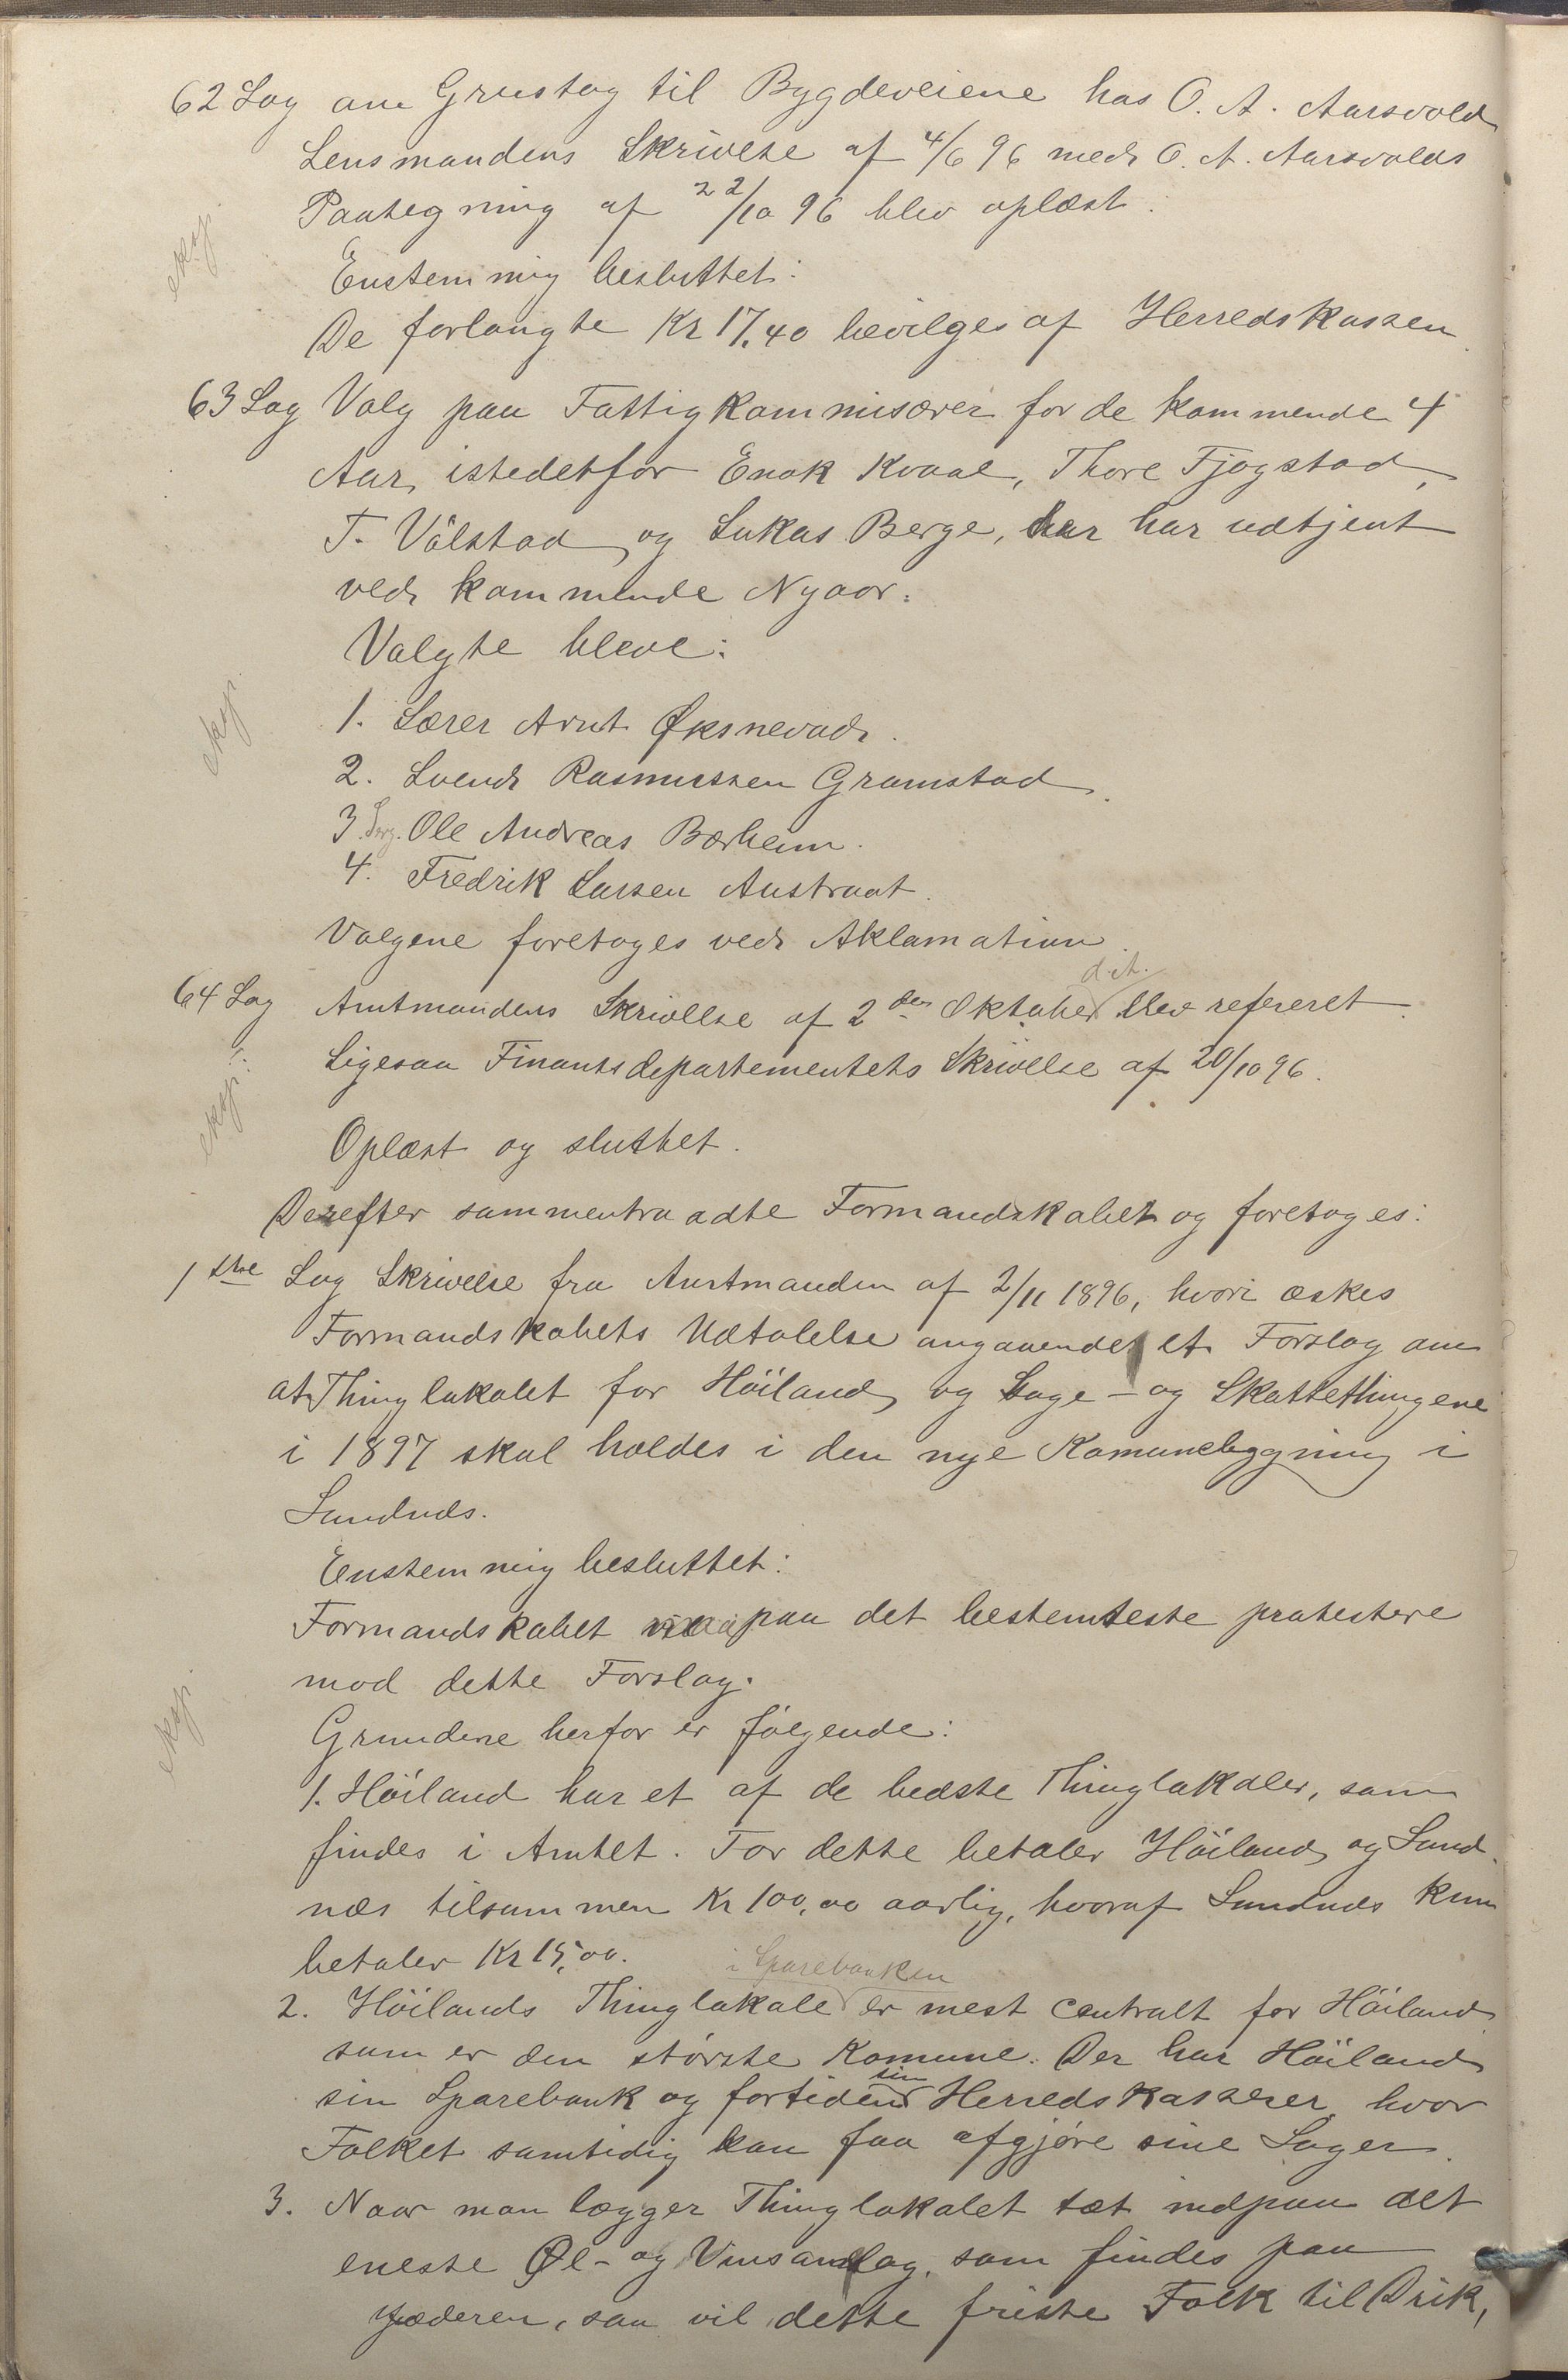 62 Sag om Grustag til Bygdeveiene hos O. A. Aarsvold
Lensmandens Skrivelse af 4/6 96 med O. A. Aarsvolds
Paategning af 22/10 96 blev oplæst.
eksp.
Enstemmig besluttet:
De forlangte Kr 17,40 bevilges af Herredskassen.
63 Sag Valg paa Fattigkommisærer for de kommende 4
Aar, istedetfor Enok Kvaal, Thore Fjogstad,
T. Välstad og Lukas Berge, der har udtjent
ved kommende Nyaar.
Valgte bleve:
eksp.
1. Lærer Arnt Øksnevad.
2. Svend Rasmussen Gramstad.
3. Serg. Ole Andreas Bærheim.
4. Fredrik Larsen Austraat.
Valgene foretoges ved Aklamation.
64 Sag Amtmandens Skrivelse af 2den Oktober d.A. blev refereret.
Ligesaa Finantsdepartementets Skrivelse af 20/10 96.
eksp.
Oplæst og sluttet.
Derefter sammentraadte Formandskabet og foretoges:
1ste Sag Skrivelse fra Amtmanden af 2/11 1896, hvori æskes
Formandskabets Udtalelse angaaende et Forslag om
at Thinglokalet for Höiland og Sage- og Skattethingene
i 1897 skal holdes i den nye Komunebygning i
Sandnæs.
Enstemmig besluttet:
Formandskabet maa paa det bestemteste protestere
mod dette Forslag.
eksp.
Grundene herfor er fölgende:
1. Höiland har et af de bedste Thinglokaler, som
findes i Amtet. For dette betaler Höiland og Sand-
næs tilsammen Kr 100,00 aarlig, hvoraf Sandnæs kun
betaler Kr 15,00.
2. Höilands Thinglokale i Sparebanken er mest centralt for Höiland
som er den störste Komune. Der har Höiland
sin Sparebank og fortiden sin Herredskasserer, hvor
Folket samtidig kan faa afgjöre sine Sager.
3. Naar man lægger Thinglokalet tæt indpaa det
eneste Øl- og Vinsamlag, som findes paa
Jæderen, saa vil dette friste Folk til Drik,